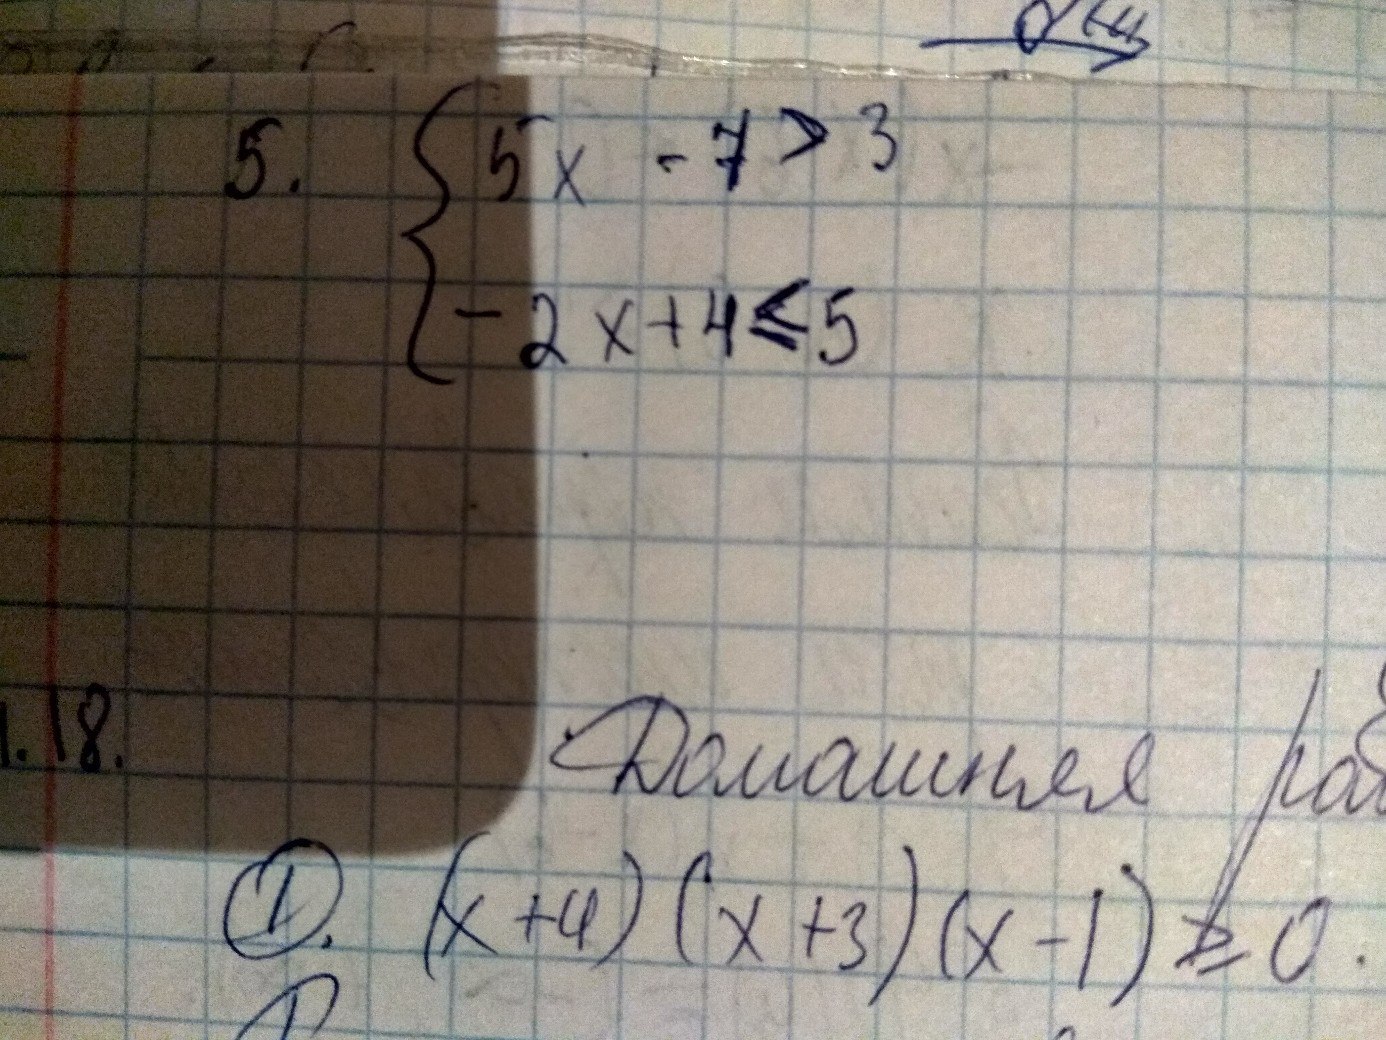 5. { 5x - 7 > 3
-2x + 4 ≤ 5
1.18.
Домашняя
①. (x + 4)(x + 3)(x - 1) ≥ 0.